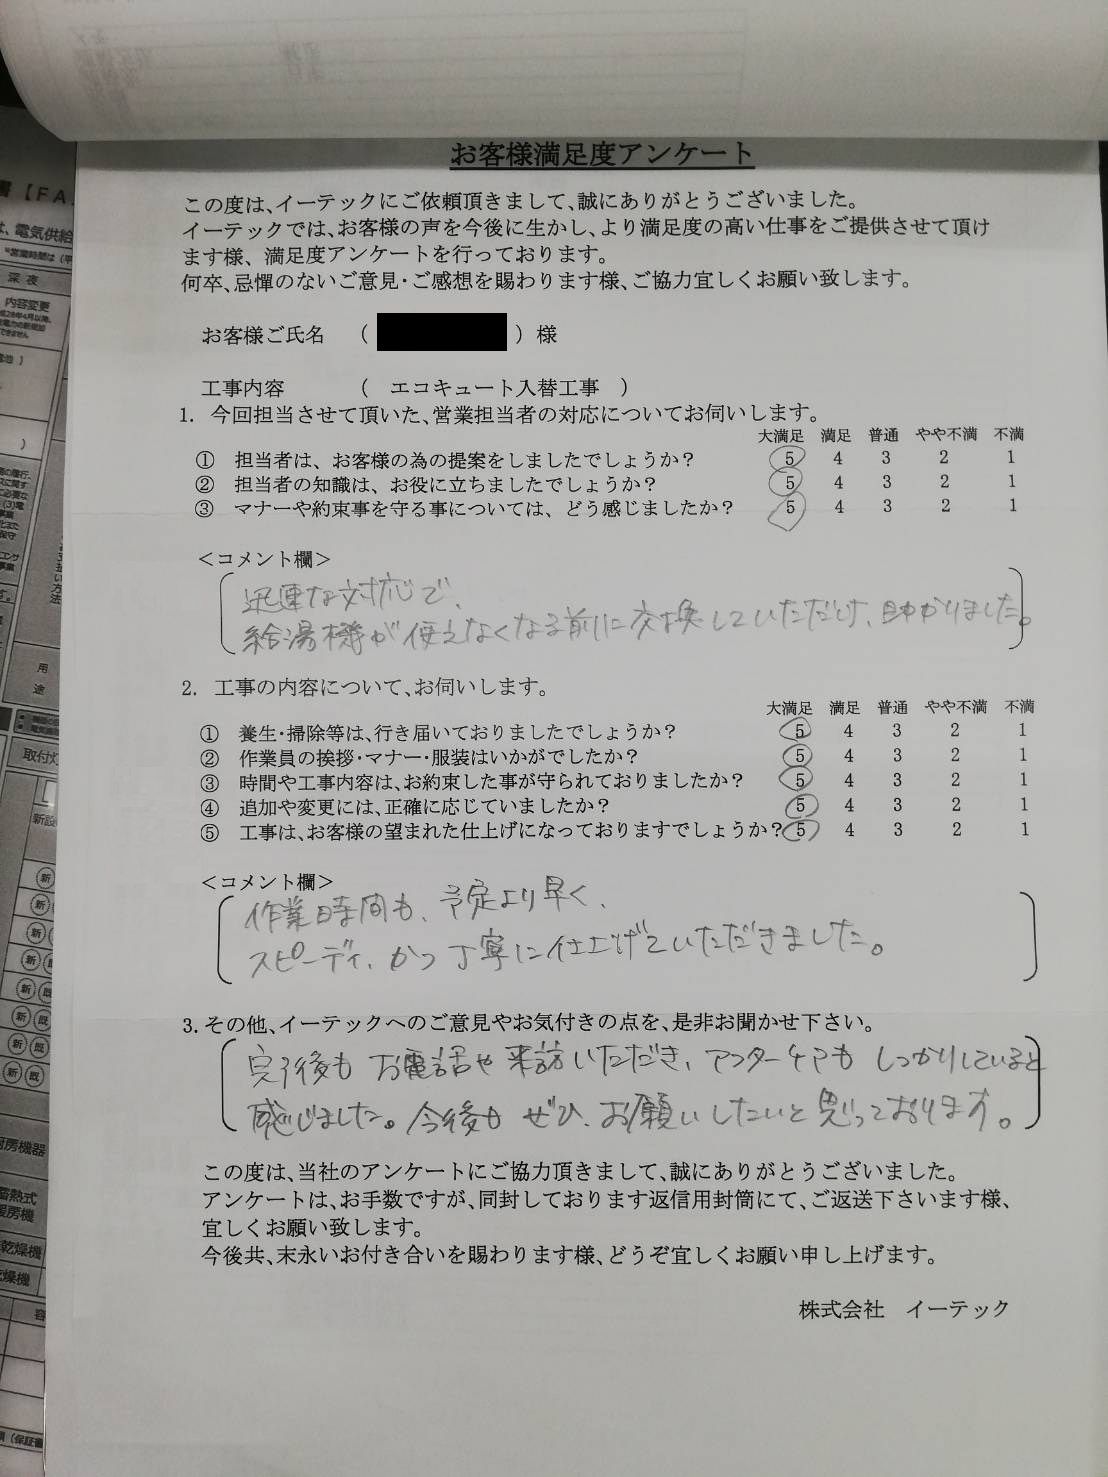 お客様満足度アンケート
この度は、イーテックにご依頼頂きまして、誠にありがとうございました。
イーテックでは、お客様の声を今後に生かし、より満足度の高い仕事をご提供させて頂け
ます様、満足度アンケートを行っております。
何卒、忌憚のないご意見・ご感想を賜わります様、ご協力宜しくお願い致します。
お客様ご氏名 （ ）様
工事内容 （ エコキュート入替工事 ）
1. 今回担当させて頂いた、営業担当者の対応についてお伺いします。
大満足 満足 普通 やや不満 不満
① 担当者は、お客様の為の提案をしましたでしょうか？ 5 4 3 2 1
② 担当者の知識は、お役に立ちましたでしょうか？ 5 4 3 2 1
③ マナーや約束事を守る事については、どう感じましたか？ 5 4 3 2 1
＜コメント欄＞
迅速な対応で、
給湯機が使えなくなる前に交換していただけ、助かりました。
2. 工事の内容について、お伺いします。
大満足 満足 普通 やや不満 不満
① 養生・掃除等は、行き届いておりましたでしょうか？ 5 4 3 2 1
② 作業員の挨拶・マナー・服装はいかがでしたか？ 5 4 3 2 1
③ 時間や工事内容は、お約束した事が守られておりましたか？ 5 4 3 2 1
④ 追加や変更には、正確に応じていましたか？ 5 4 3 2 1
⑤ 工事は、お客様の望まれた仕上げになっておりますでしょうか？ 5 4 3 2 1
＜コメント欄＞
作業時間も、予定より早く、
スピーディ、かつ丁寧に仕上げていただきました。
3. その他、イーテックへのご意見やお気付きの点を、是非お聞かせ下さい。
完了後もお電話や来訪いただき、アフターケアもしっかりしていると
感じました。今後もぜひ、お願いしたいと思っております。
この度は、当社のアンケートにご協力頂きまして、誠にありがとうございました。
アンケートは、お手数ですが、同封しております返信用封筒にて、ご返送下さいます様、
宜しくお願い致します。
今後共、末永いお付き合いを賜わります様、どうぞ宜しくお願い申し上げます。
株式会社 イーテック
書【FA
電気供給
深夜
内容変更
用
途
取付
新設
新
新
新
新 既
新 既
新 既
新 既
新 既
厨房機器
蓄熱式
暖房機
乾燥機
燥機
容
(保証書